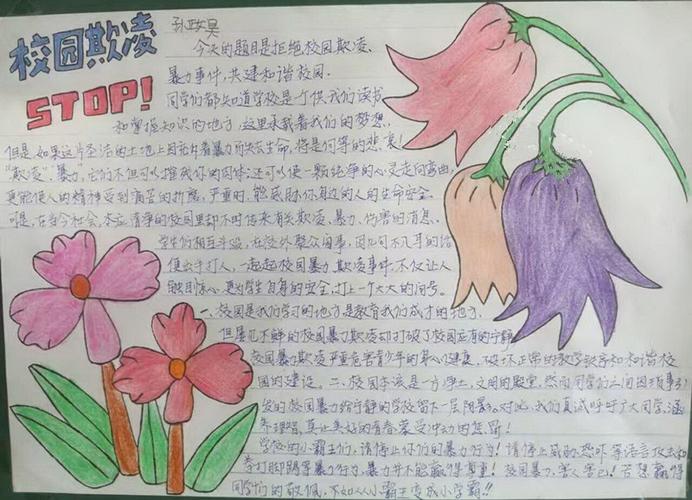 校园欺凌
STOP!
孙政昊
今天的题目是拒绝校园欺凌、
暴力事件,共建和谐校园.
同学们都知道学校是个供我们读书
和掌握知识的地方,这里承载着我们的梦想.
但是如果这片圣洁的土地上因充斥着暴力而失去生命,将是何等的悲哀!
"欺凌"、暴力,它们不但可以摧残你的肉体,还可以使一颗纯净的心灵走向弯曲,
更能使人的精神受到痛苦的折磨,严重时,能威胁你身边的人的生命安全.
可是,在当今社会,本应清净的校园里却不时传来有关欺凌、暴力、伤害的消息.
学生们相互斗殴,在校外聚众闹事,因几句不凡耳的话
便出手打人,一起起校园暴力欺凌事件,不仅让人
触目惊心,更为学生自身的安全,打上一个大大的问号.
一、校园是我们学习的地方是教育我们成才的地方.
但屡见不鲜的校园暴力欺凌却打破了校园应有的宁静
校园暴力欺凌严重危害青少年的身心健康,破坏正常的教学秩序和和谐校
园的建设,二、校园本该是一方净土,文明的殿堂,然而同学们之间因琐事引
发的校园暴力给宁静的学校留下一层阴影.对此,我们真诚呼吁广大同学,涵
养理智,莫让美好的青春蒙受冲动的惩罚!
学校的小霸王们,请停止你们的暴力行为!请停止威胁、恐吓等语言攻击和
拳打脚踢等暴力行为,暴力并不能赢得尊重!校园暴力,害人害己!若想赢得
同学们的敬佩,不如从小霸王变成小学霸!!